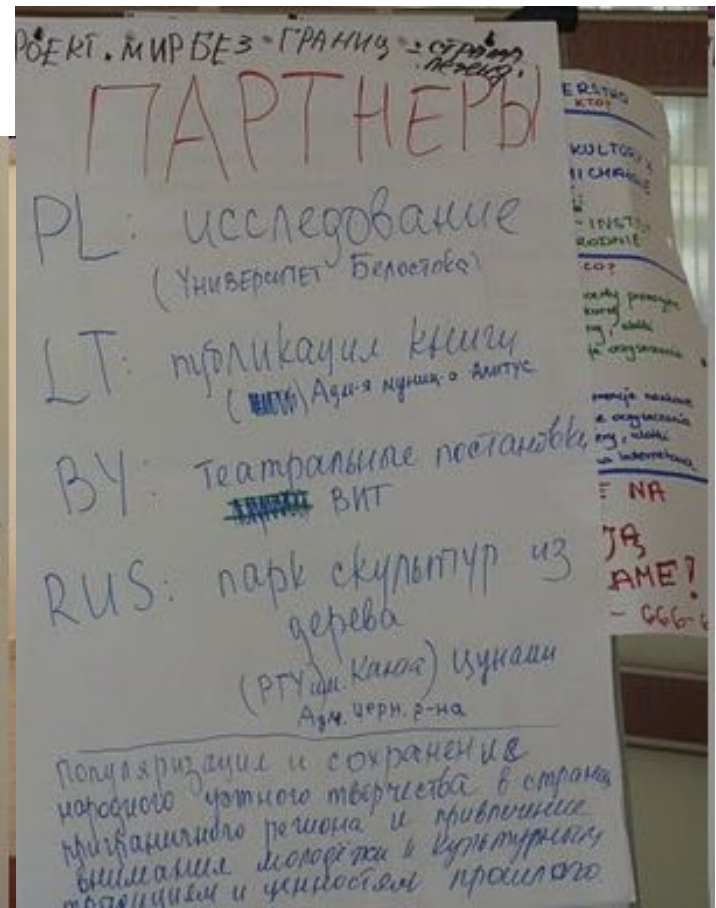 РОЕКТ. МИР БЕЗ ГРАНИЦ = страна
легенд.
ПАРТНЕРЫ
PL: исследование
(Университет Белостока)
LT: публикация книги
( ) Адм-я муниц-а Алитус
BY: театральные постановки
ВИТ
RUS: парк скульптур из
дерева
(РГУ им. Канта) Цунами
Адм. черн. р-на
Популяризация и сохранение
народного устного творчества в странах
приграничного региона и привлечение
внимания молодёжи к культурным
традициям и ценностям прошлого
ERSTWO
KTO?
KULTURY
MICHA
- INST
RODNIE
CO?
E NA
JĄ
AME?
- 666-6